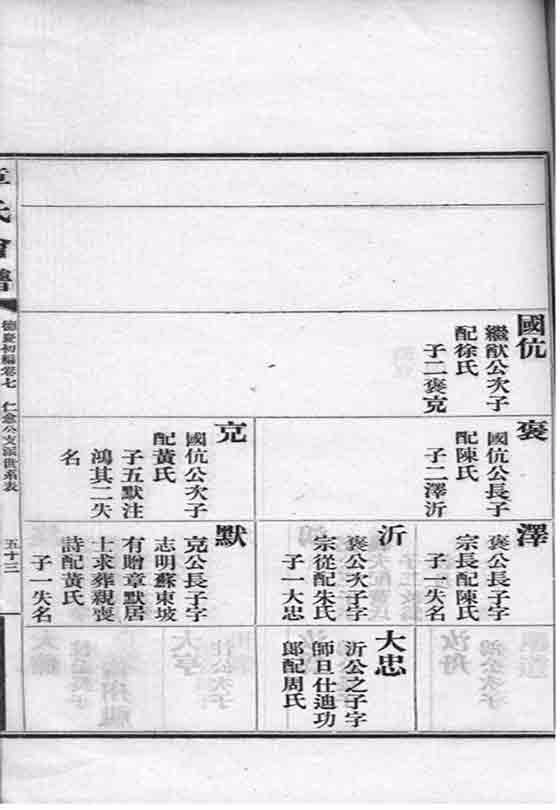 國伉
繼猷公次子
配徐氏
子二褒克
褒
國伉公長子
配陳氏
子二澤沂
克
國伉公次子
配黃氏
子五默注
鴻其二失
名
澤
褒公長子字
宗長配陳氏
子一失名
沂
褒公次子字
宗從配朱氏
子一大忠
默
克公長子字
志明蘇東坡
有贈章默居
士求葬親喪
詩配黃氏
子一失名
大忠
沂公之子字
師旦仕迪功
郎配周氏
章氏會譜
德慶初編卷七
仁愈公支派世系表
五十三